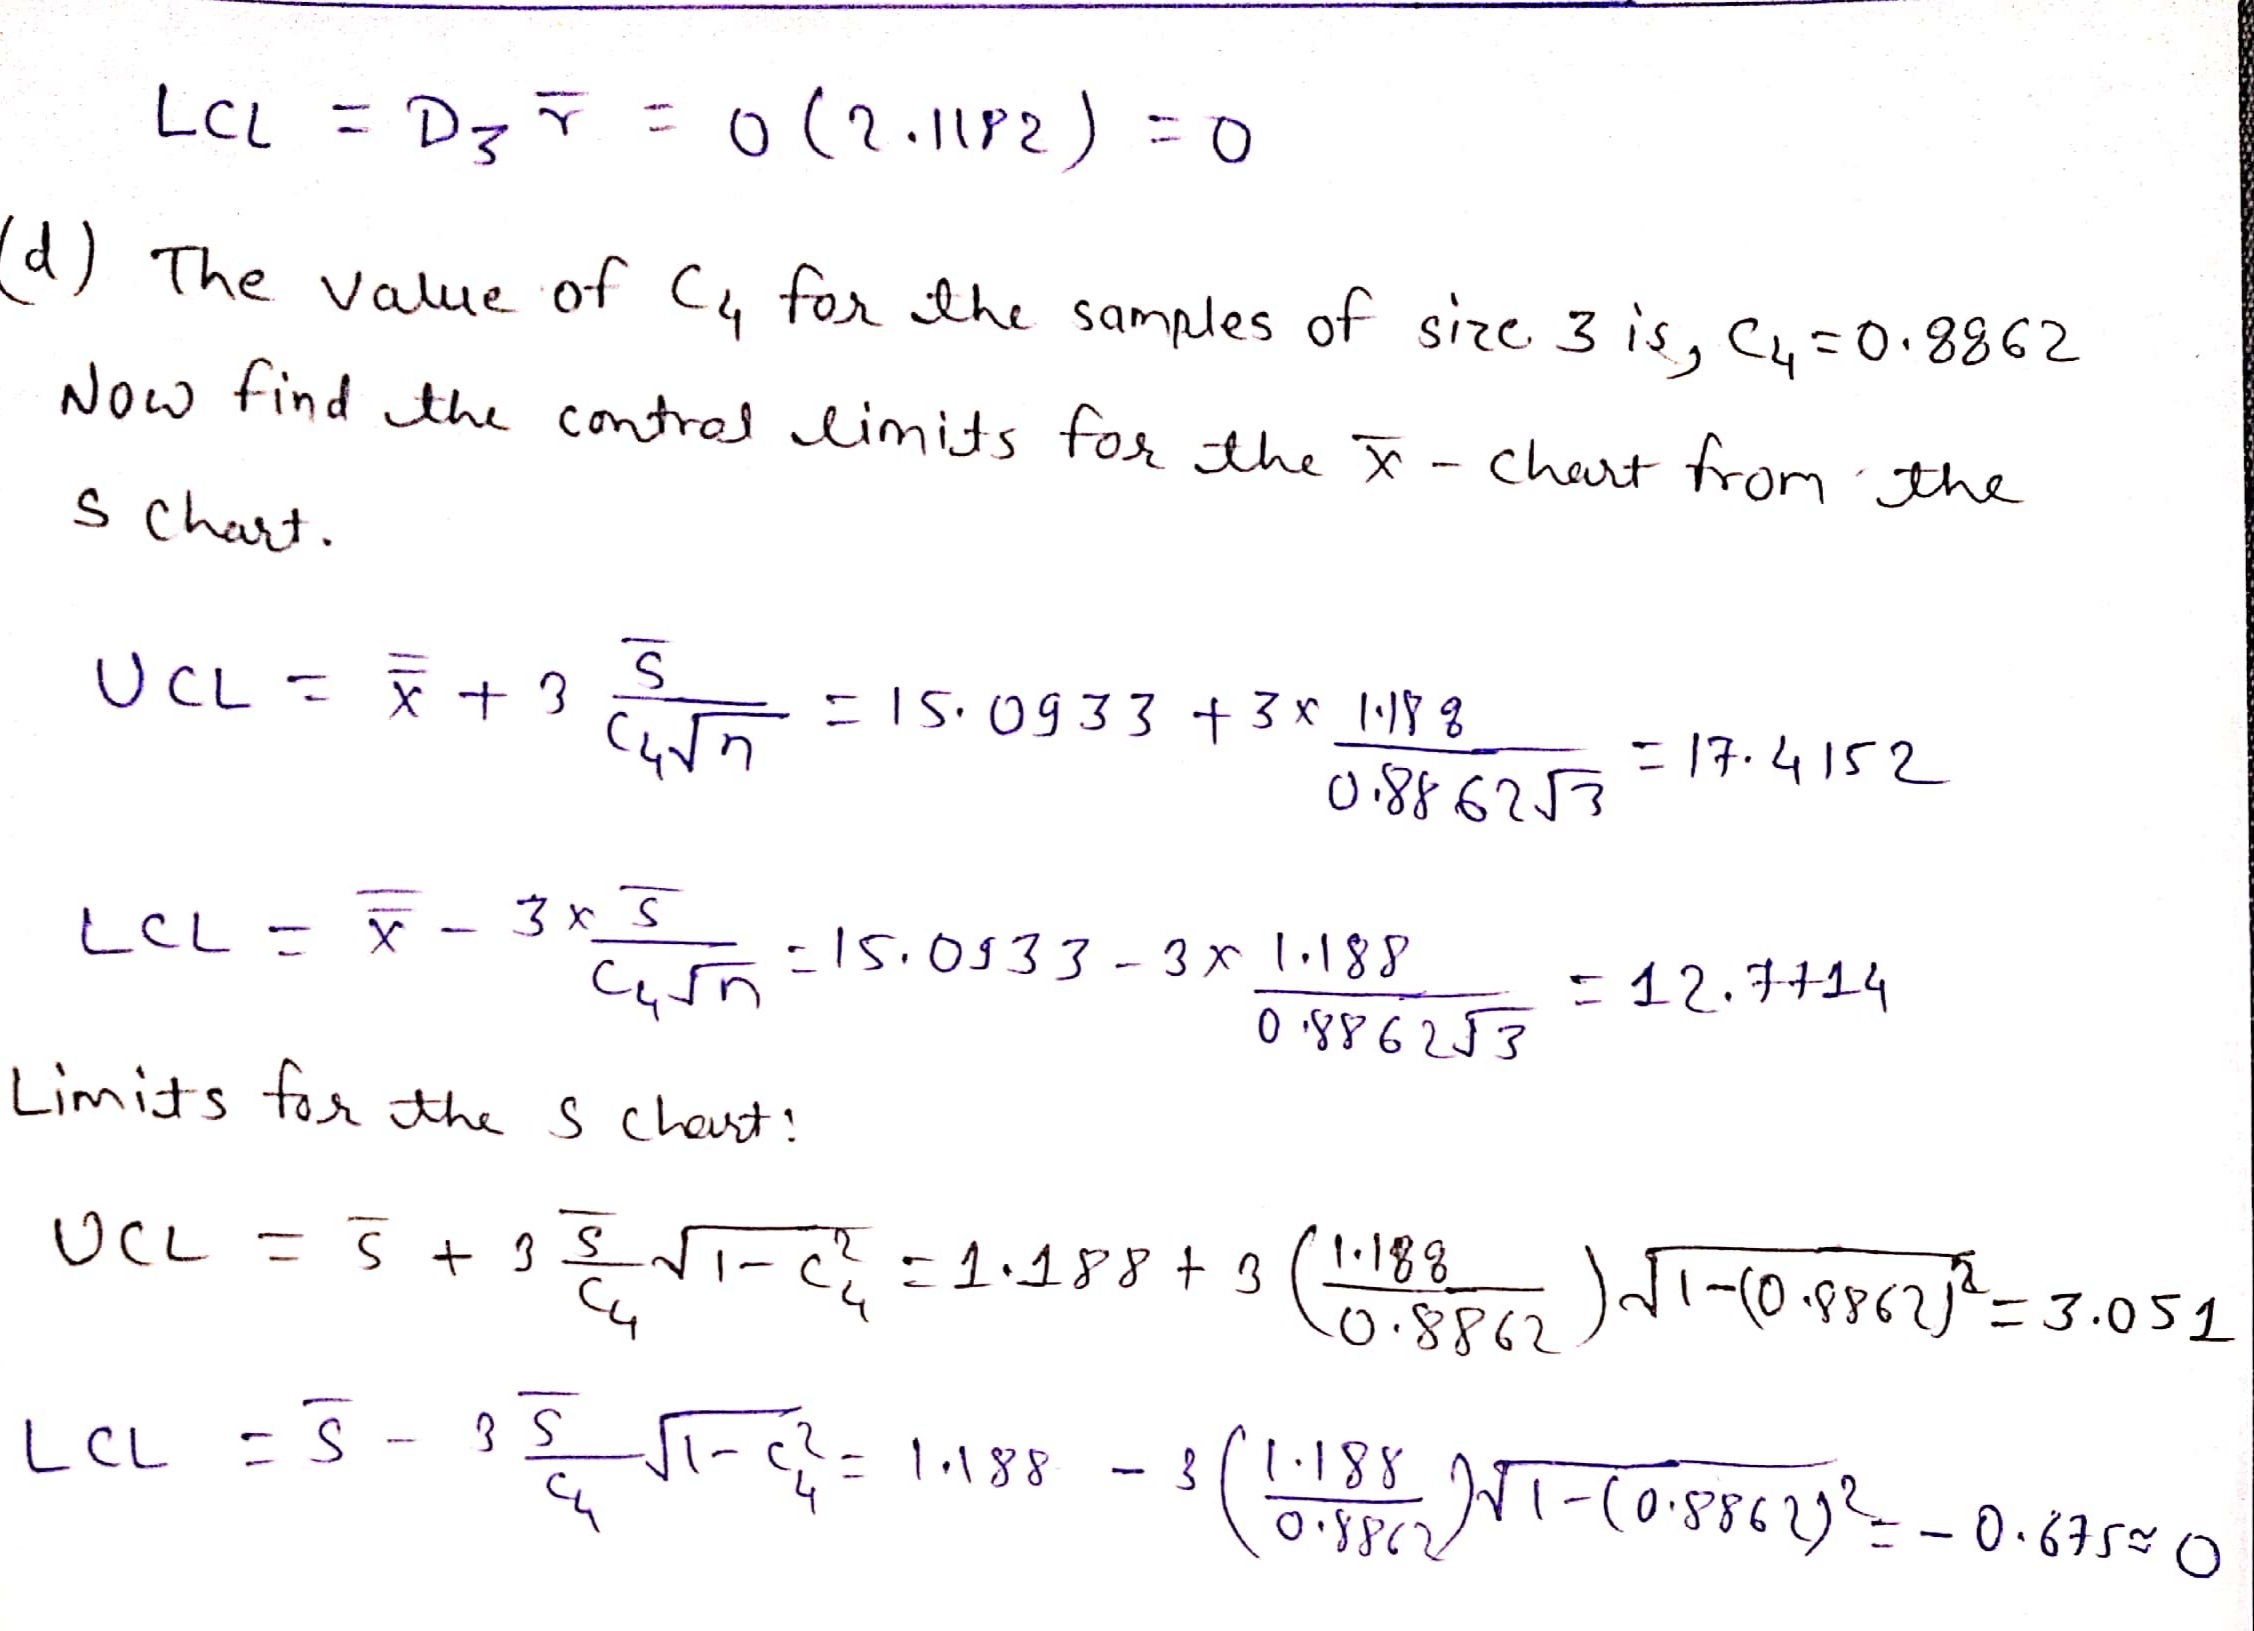 LCL = D₃ r̄ = 0 (2.1182) = 0
(d) The value of C₄ for the samples of size 3 is, C₄ = 0.8862
Now find the control limits for the x̄ - chart from the
S chart.
UCL = x̿ + 3 s̄/(C₄√n) = 15.0933 + 3 × 1.188/(0.8862√3) = 17.4152
LCL = x̿ - 3 × s̄/(C₄√n) = 15.0933 - 3 × 1.188/(0.8862√3) = 12.7714
Limits for the S chart:
UCL = s̄ + 3 s̄/C₄ √(1-C₄²) = 1.188 + 3 (1.188/0.8862) √(1-(0.8862)²) = 3.051
LCL = s̄ - 3 s̄/C₄ √(1-C₄²) = 1.188 - 3 (1.188/0.8862) √(1-(0.8862)²) = -0.675 ≈ 0